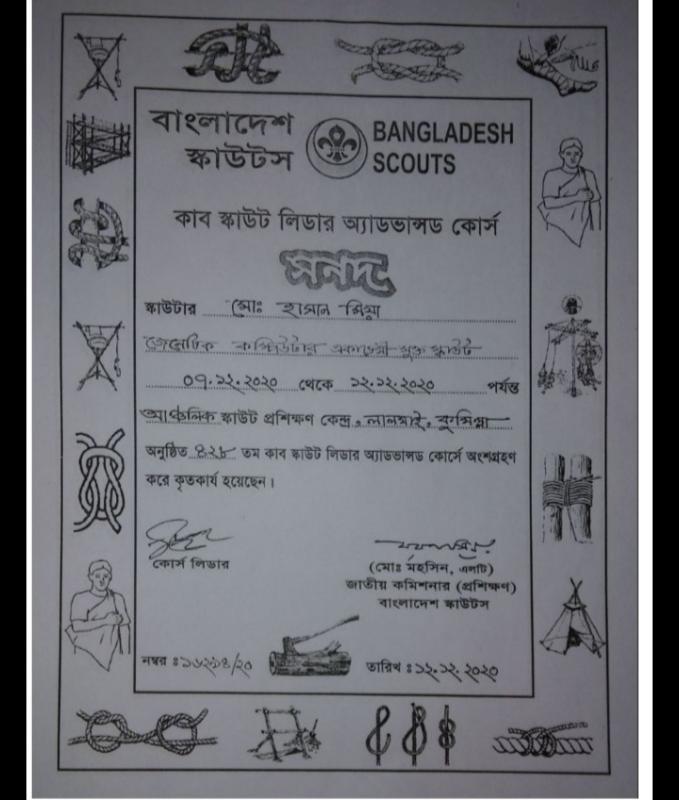 বাংলাদেশ স্কাউটস
BANGLADESH SCOUTS
কাব স্কাউট লিডার অ্যাডভান্সড কোর্স
সনদ
স্কাউটার মোঃ হাসান মিয়া
জেনেটিক কম্পিউটার একাডেমী মুক্ত স্কাউট
০৭.১২.২০২০ থেকে ১২.১২.২০২০ পর্যন্ত
আঞ্চলিক স্কাউট প্রশিক্ষণ কেন্দ্র, লালমাই, কুমিল্লা
অনুষ্ঠিত ৪২৮ তম কাব স্কাউট লিডার অ্যাডভান্সড কোর্সে অংশগ্রহণ
করে কৃতকার্য হয়েছেন।
কোর্স লিডার
(মোঃ মহসিন, এলটি)
জাতীয় কমিশনার (প্রশিক্ষণ)
বাংলাদেশ স্কাউটস
নম্বর ঃ
তারিখ ঃ ১২.১২.২০২০